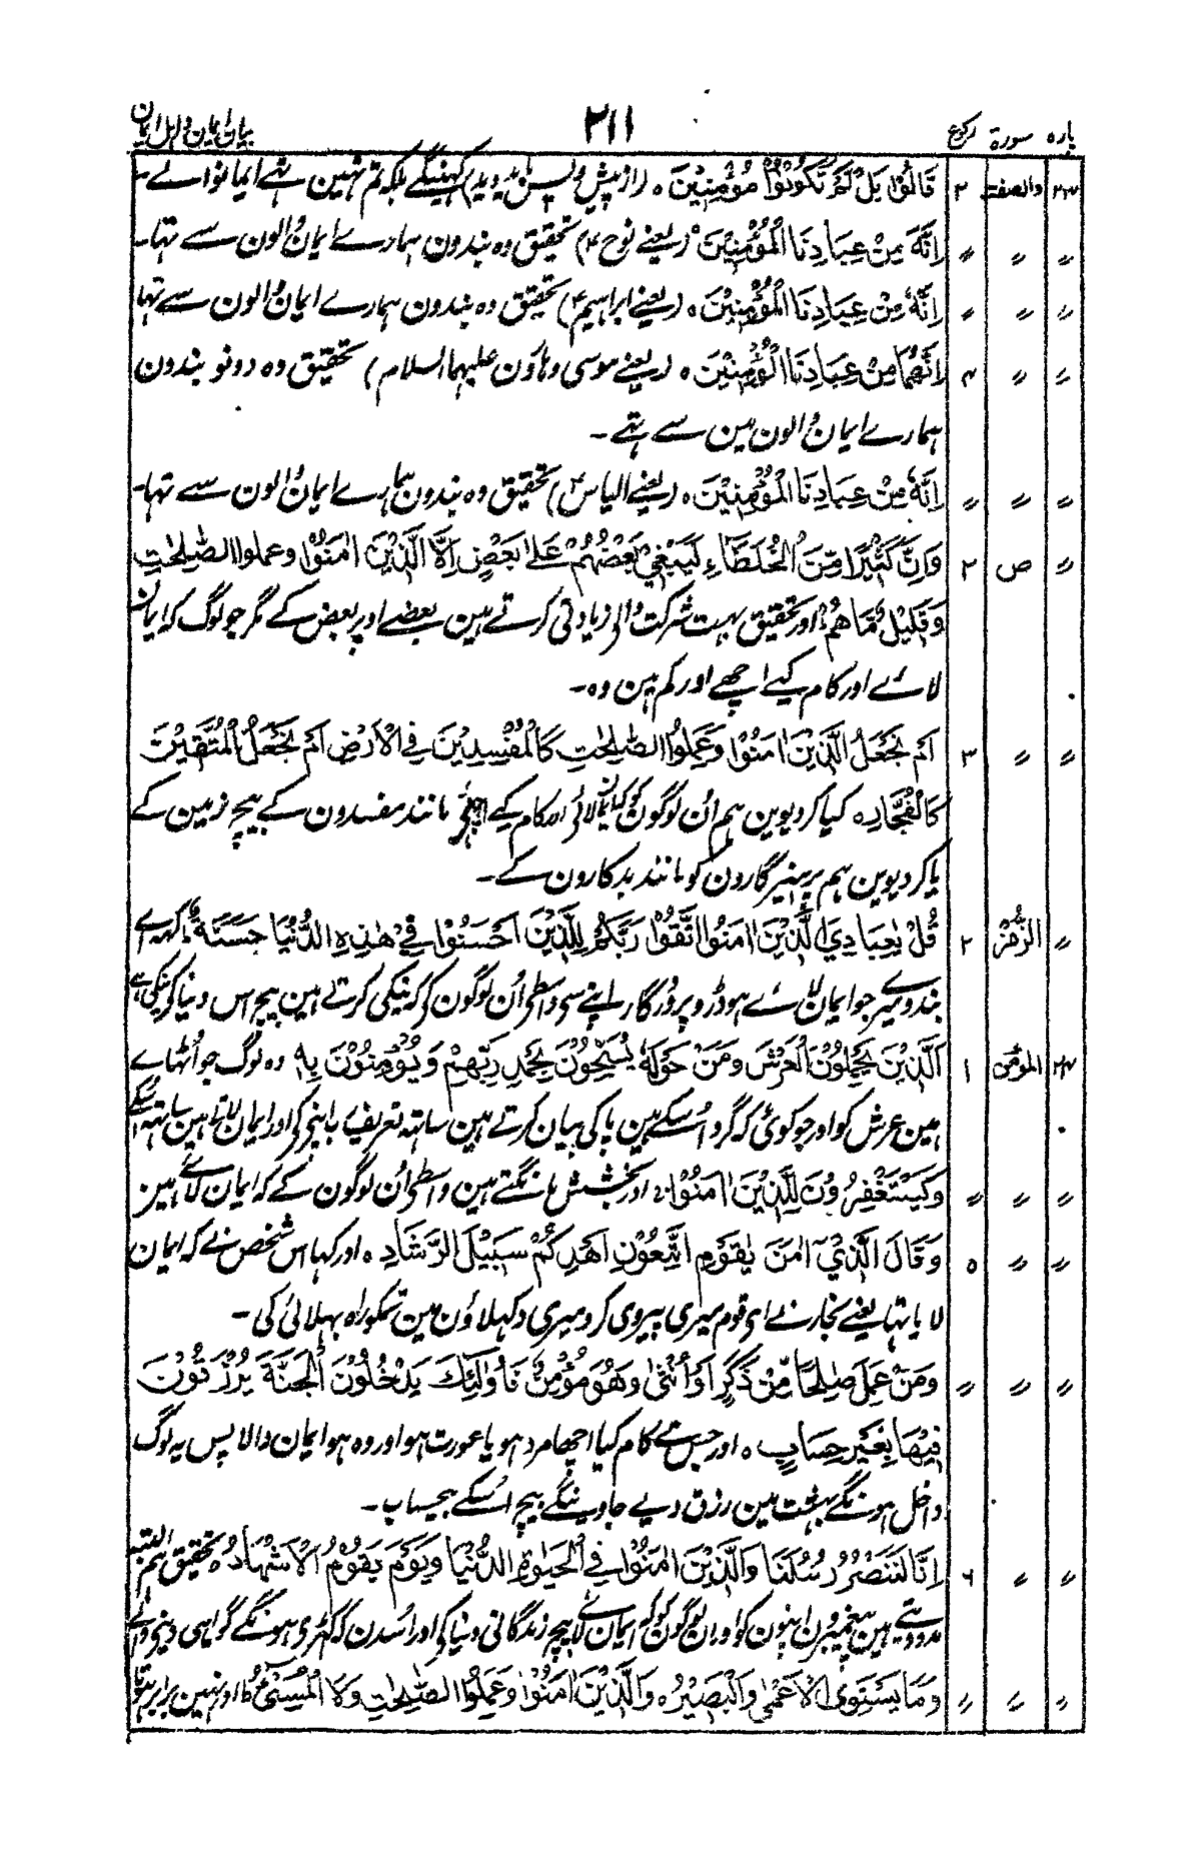 پارہ سورۃ رکوع ۲۱۱ بیان ایمان و اہل ایمان
۲۳ والصفت ۲ قَالُوْا بَلْ لَّمْ تَكُوْنُوْا مُؤْمِنِيْنَ ہ کہینگے بلکہ تم نہین تھے ایمانوالے
〃 〃 〃 اِنَّهٗ مِنْ عِبَادِنَا الْمُؤْمِنِيْنَ ہ (یعنے نوح ؑ) تحقیق وہ بندون ہمارے ایمان والون سے تہا۔
〃 〃 〃 اِنَّهٗ مِنْ عِبَادِنَا الْمُؤْمِنِيْنَ ہ (یعنے ابراہیم ؑ) تحقیق وہ بندون ہمارے ایمان والون سے تہا
〃 〃 ۴ اِنَّهُمَا مِنْ عِبَادِنَا الْمُؤْمِنِيْنَ ہ (یعنے موسی و ہاَرون علیہما السلام) تحقیق وہ دونو بندون
ہمارے ایمان والون مین سے تہے ۔
〃 〃 〃 اِنَّهٗ مِنْ عِبَادِنَا الْمُؤْمِنِيْنَ ہ (یعنے الیاس ؑ) تحقیق وہ بندون ہمارے ایمان والون سے تہا۔
〃 ص ۲ وَاِنَّ كَثِيْرًا مِّنَ الْخُلَطَآءِ لَيَبْغِيْ بَعْضُهُمْ عَلٰى بَعْضٍ اِلَّا الَّذِيْنَ اٰمَنُوْا وعملوا الصّٰلِحٰتِ
وَقَلِيْلٌ مَّا هُمْ اور تحقیق بہت شرکت والی زیادتی کرتے ہین بعضے اوپر بعض کے مگر جو لوگ کہ ایمان
لائے اور کام کیے اچھے اور کم ہین وہ۔
〃 〃 ۳ اَمْ نَجْعَلُ الَّذِيْنَ اٰمَنُوْا وَعَمِلُوا الصّٰلِحٰتِ كَالْمُفْسِدِيْنَ فِي الْاَرْضِ اَمْ نَجْعَلُ الْمُتَّقِيْنَ
كَالْفُجَّارِ ہ کیا کر دیوین ہم اُن لوگون کو کہ ایمان لائے اور کام کیے اچھے مانند مفسدون کے بیچ زمین کے
یا کر دیوین ہم پرہیزگارون کو مانند بدکارون کے ۔
〃 الزُّمَرْ ۲ قُلْ يٰعِبَادِيَ الَّذِيْنَ اٰمَنُوا اتَّقُوْا رَبَّكُمْ لِلَّذِيْنَ اَحْسَنُوْا فِيْ هٰذِهِ الدُّنْيَا حَسَنَةٌ کہہ اے
بندو میرے جو ایمان لائے ہو ڈرو پروردگار اپنے سی واسطے اُن لوگون کے کہ نیکی کرتے ہین بیچ اس دنیا کے نیکی ہے
۲۴ المؤمن ۱ اَلَّذِيْنَ يَحْمِلُوْنَ الْعَرْشَ وَمَنْ حَوْلَهٗ يُسَبِّحُوْنَ بِحَمْدِ رَبِّهِمْ وَيُؤْمِنُوْنَ بِهٖ وہ لوگ جو اُٹھاے
ہین عرش کو اور جو کوئی کہ گرد اُسکے ہین پاکی بیان کرتے ہین ساتھ تعریف اپنے کی اور ایمان لاتے ہین ساتھ اسکے
〃 〃 〃 وَيَسْتَغْفِرُوْنَ لِلَّذِيْنَ اٰمَنُوْا اور بخشش مانگتے ہین واسطے اُن لوگون کے کہ ایمان لائے ہین
〃 〃 ۵ وَقَالَ الَّذِيْٓ اٰمَنَ يٰقَوْمِ اتَّبِعُوْنِ اَهْدِكُمْ سَبِيْلَ الرَّشَادِ ہ اور کہا اس شخص نے کہ ایمان
لایا تہا یعنے نجار نے ای قوم میری پیروی کرو میری دکہلاؤن مین تمکو راہ بہلائی کی ۔
〃 〃 〃 وَمَنْ عَمِلَ صَالِحًا مِّنْ ذَكَرٍ اَوْ اُنْثٰى وَهُوَ مُؤْمِنٌ فَاُولٰٓئِكَ يَدْخُلُوْنَ الْجَنَّةَ يُرْزَقُوْنَ
فِيْهَا بِغَيْرِ حِسَابٍ ہ اور جسنے کام کیا اچھا مرد ہو یا عورت ہو اور وہ ہو ایمان والا پس یہ لوگ
داخل ہونگے بہشت مین رزق دیے جاوینگے بیچ اُسکے بیحساب ۔
〃 〃 ۶ اِنَّا لَنَنْصُرُ رُسُلَنَا وَالَّذِيْنَ اٰمَنُوْا فِي الْحَيٰوةِ الدُّنْيَا وَيَوْمَ يَقُوْمُ الْاَشْهَادُ تحقیق ہم البتہ
مدد دیتے ہین پیغمبرون اپنون کو اور ان لوگون کو کہ ایمان لائے بیچ زندگانی دنیا کی اور اُسدن کہ کھڑی ہونگے گواہی دینے والے
〃 〃 〃 وَمَا يَسْتَوِي الْاَعْمٰى وَالْبَصِيْرُ ہ وَالَّذِيْنَ اٰمَنُوْا وَعَمِلُوا الصّٰلِحٰتِ وَلَا الْمُسِيْٓءُ اور نہین برابر ہوتا